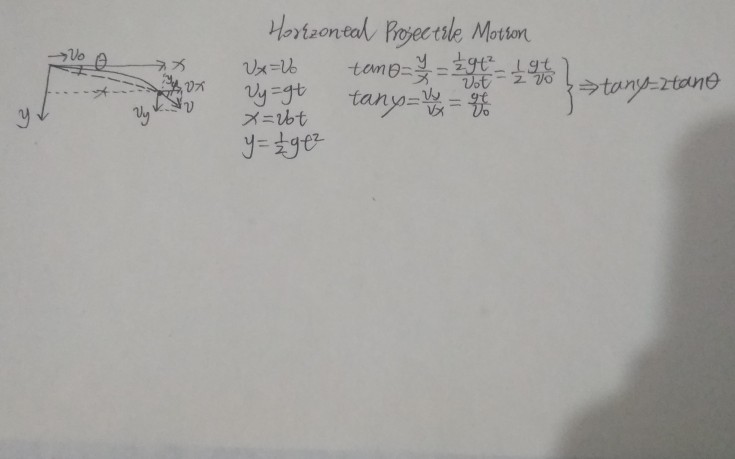 Horizontal Projectile Motion
→v₀ θ x
y x vy φ vx v
vx=v₀
vy=gt
x=v₀t
y=½gt²
tanθ=y/x=½gt²/v₀t=½ gt/v₀
tanφ=vy/vx=gt/v₀
} ⇒tanφ=2tanθ